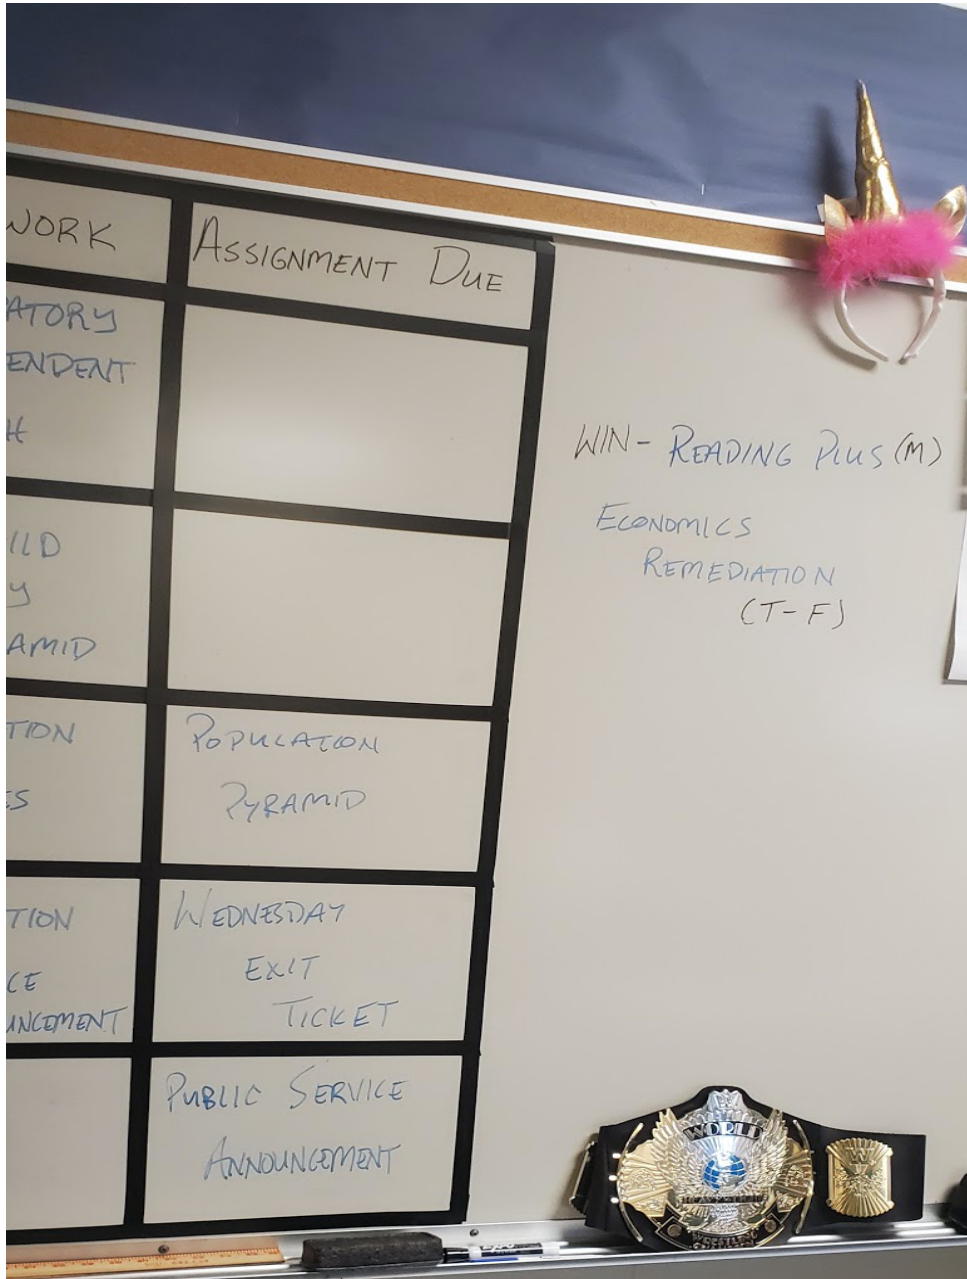 WORK
ASSIGNMENT DUE
ATORY
ENDENT
H
ILD
Y
AMID
TION
ES
POPULATION
PYRAMID
TION
CE
UNCEMENT
WEDNESDAY
EXIT
TICKET
PUBLIC SERVICE
ANNOUNCEMENT
WIN- READING PLUS (M)
ECONOMICS
REMEDIATION
(T-F)
WORLD
HEAVYWEIGHT
WRESTLING